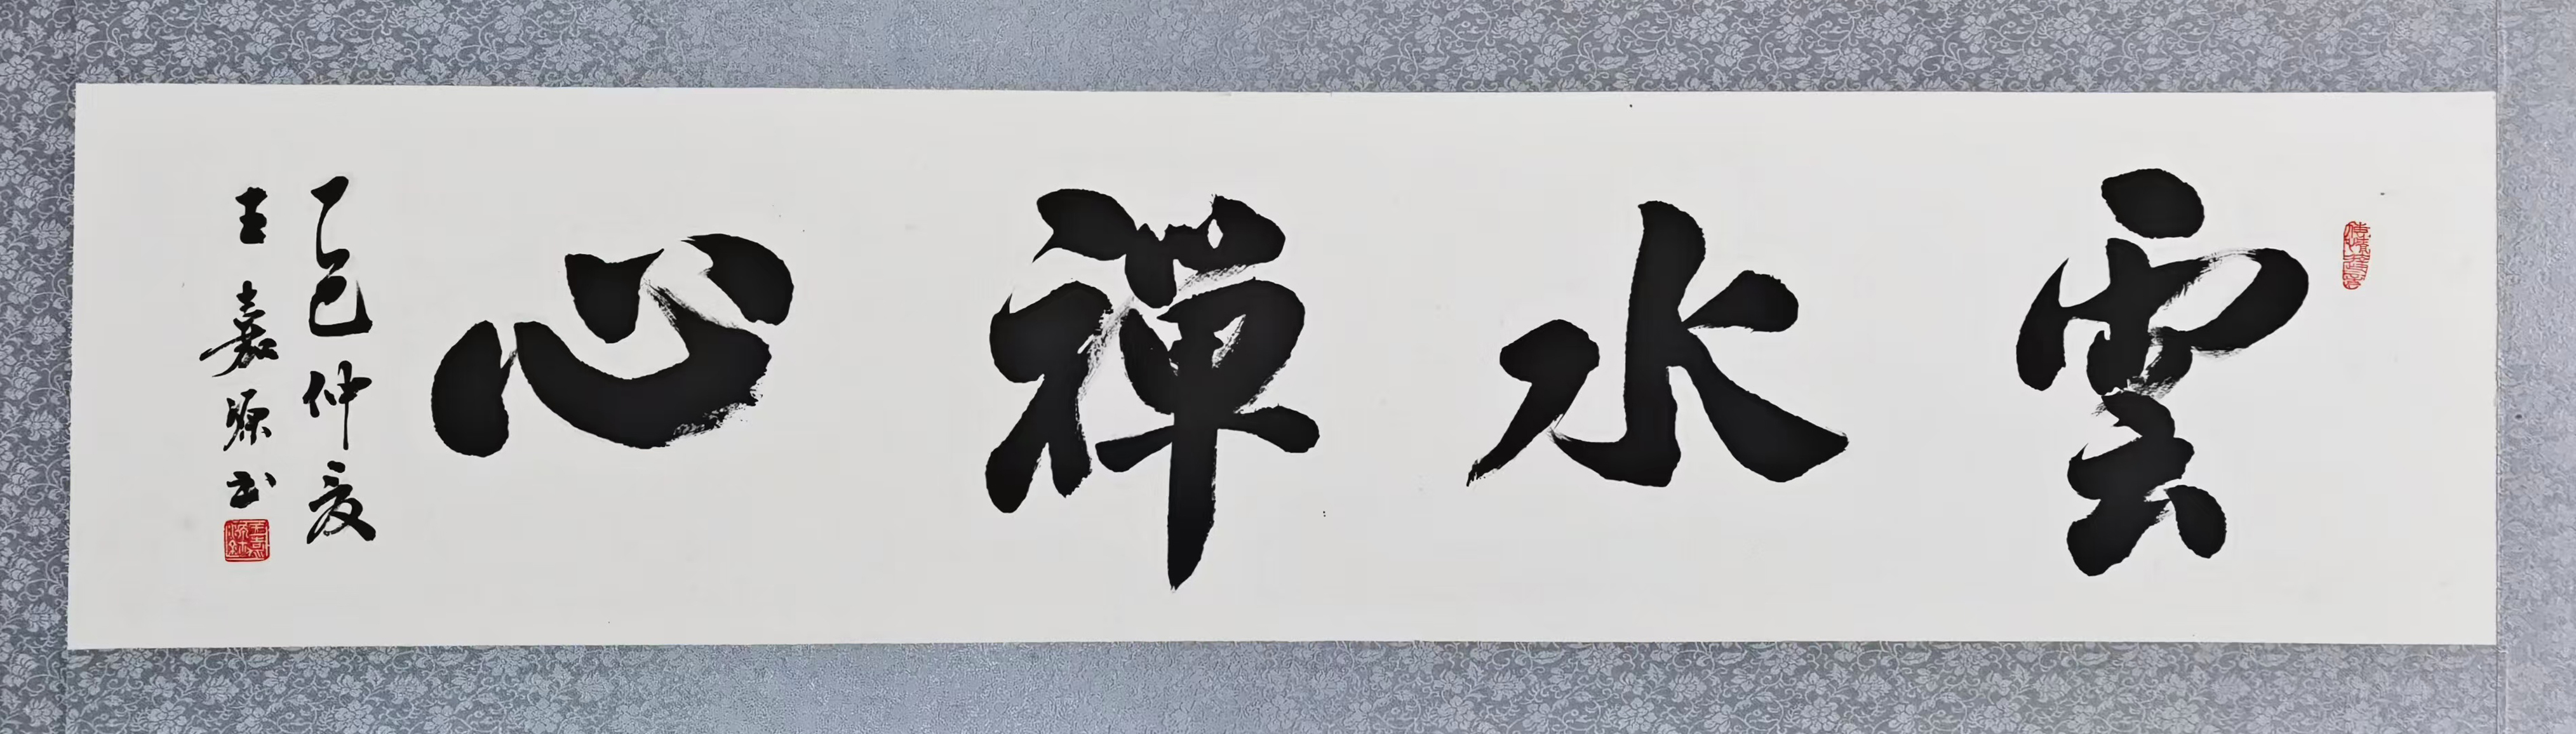 雲水禪心
乙巳仲夏
王嘉源书